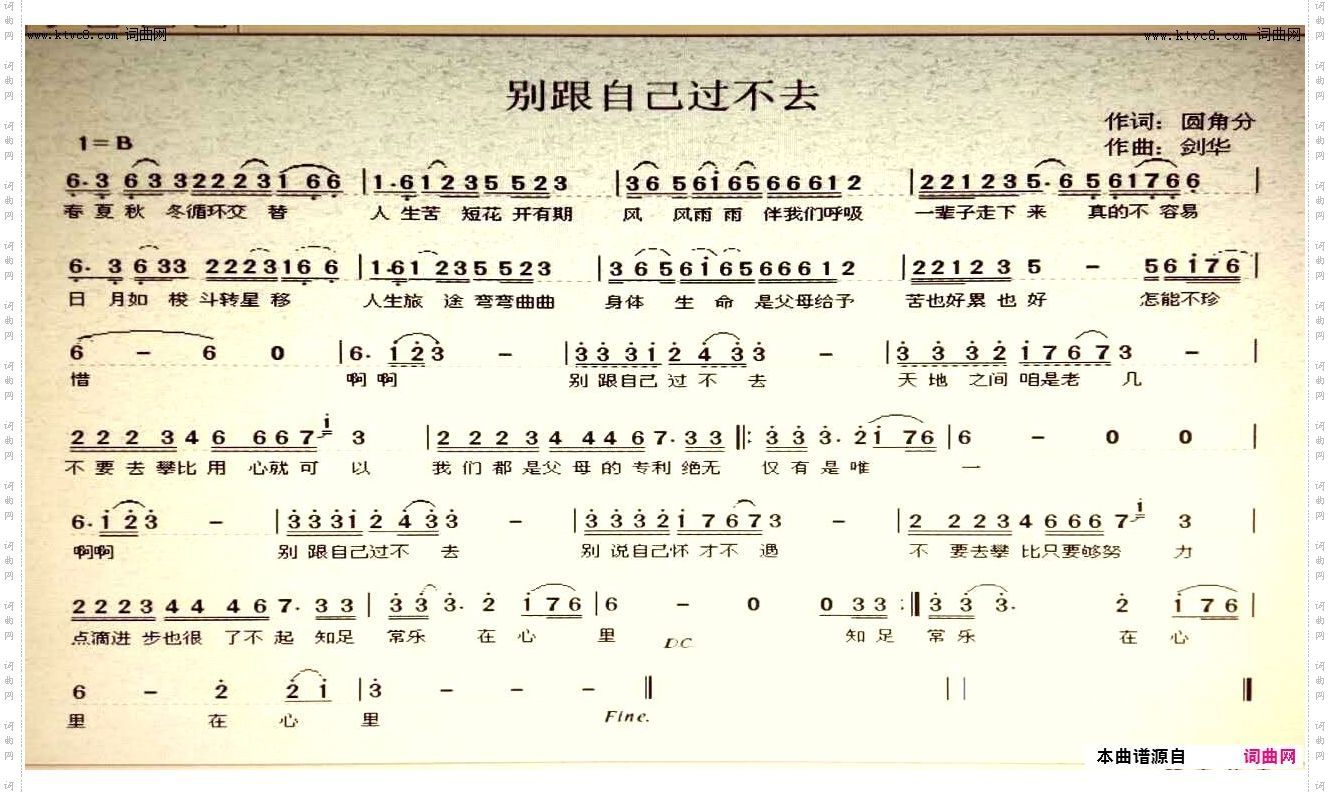 www.ktvc8.com 词曲网
www.ktvc8.com 词曲网
别跟自己过不去
作词：圆角分
1=B
作曲：剑华
6. 3 6 3 3 2 2 2 3 1 6 6 | 1. 6 1 2 3 5 5 2 3 | 3 6 5 6 i 6 5 6 6 6 1 2 | 2 2 1 2 3 5. 6 5 6 1 7 6 6 |
春夏秋 冬循环交 替 人生苦 短花开有期 风 风雨雨 伴我们呼吸 一辈子走下来 真的不容易
6. 3 6 3 3 2 2 2 3 1 6 6 | 1. 6 1 2 3 5 5 2 3 | 3 6 5 6 i 6 5 6 6 6 1 2 | 2 2 1 2 3 5 – 5 6 i 7 6 |
日 月如 梭 斗转星移 人生旅 途 弯弯曲曲 身体 生 命 是父母给予 苦也好累也好 怎能不珍
6 – 6 0 | 6. i 2 3 – | 3 3 3 i 2 4 3 3 – | 3 3 3 2 i 7 6 7 3 – |
惜 啊啊 别跟自己过不去 天地之间咱是老几
2 2 2 3 4 6 6 6 7 i 3 | 2 2 2 3 4 4 4 6 7. 3 3 ‖: 3 3 3. 2 i 7 6 | 6 – 0 0 |
不要去攀比用心就可以 我们都是父母的专利绝无 仅有是唯 一
6. i 2 3 – | 3 3 3 i 2 4 3 3 – | 3 3 3 2 i 7 6 7 3 – | 2 2 2 3 4 6 6 6 7 i 3 |
啊啊 别跟自己过不去 别说自己怀才不遇 不要去攀比只要够努力
2 2 2 3 4 4 4 6 7. 3 3 | 3 3 3. 2 i 7 6 | 6 – 0 0 3 3 :‖ 3 3 3. 2 i 7 6 |
点滴进步也很了不起 知足 常乐 在心 里 DC 知足 常乐 在心
6 – 2 2 i | 3 – – – ‖
里 在 心 里 Fine.
本曲谱源自 词曲网